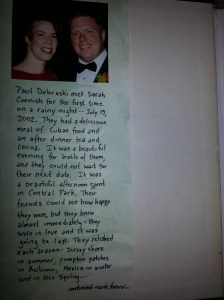 Paul Dobranski met Sarah
Cornish for the first time
on a rainy night -- July 19,
2002. They had a delicious
meal of Cuban food and
an after dinner tea and
cocoa. It was a beautiful
evening for both of them,
and they could not wait for
their next date. It was
a beautiful afternoon spent
in Central Park. Their
friends could see how happy
they were, but they knew
almost immediately, they
were in love and it was
going to last. They relished
each season: Jersey shore
in summer, pumpkin patches
in Autumn, Mexico in winter
and in the Spring--
continued